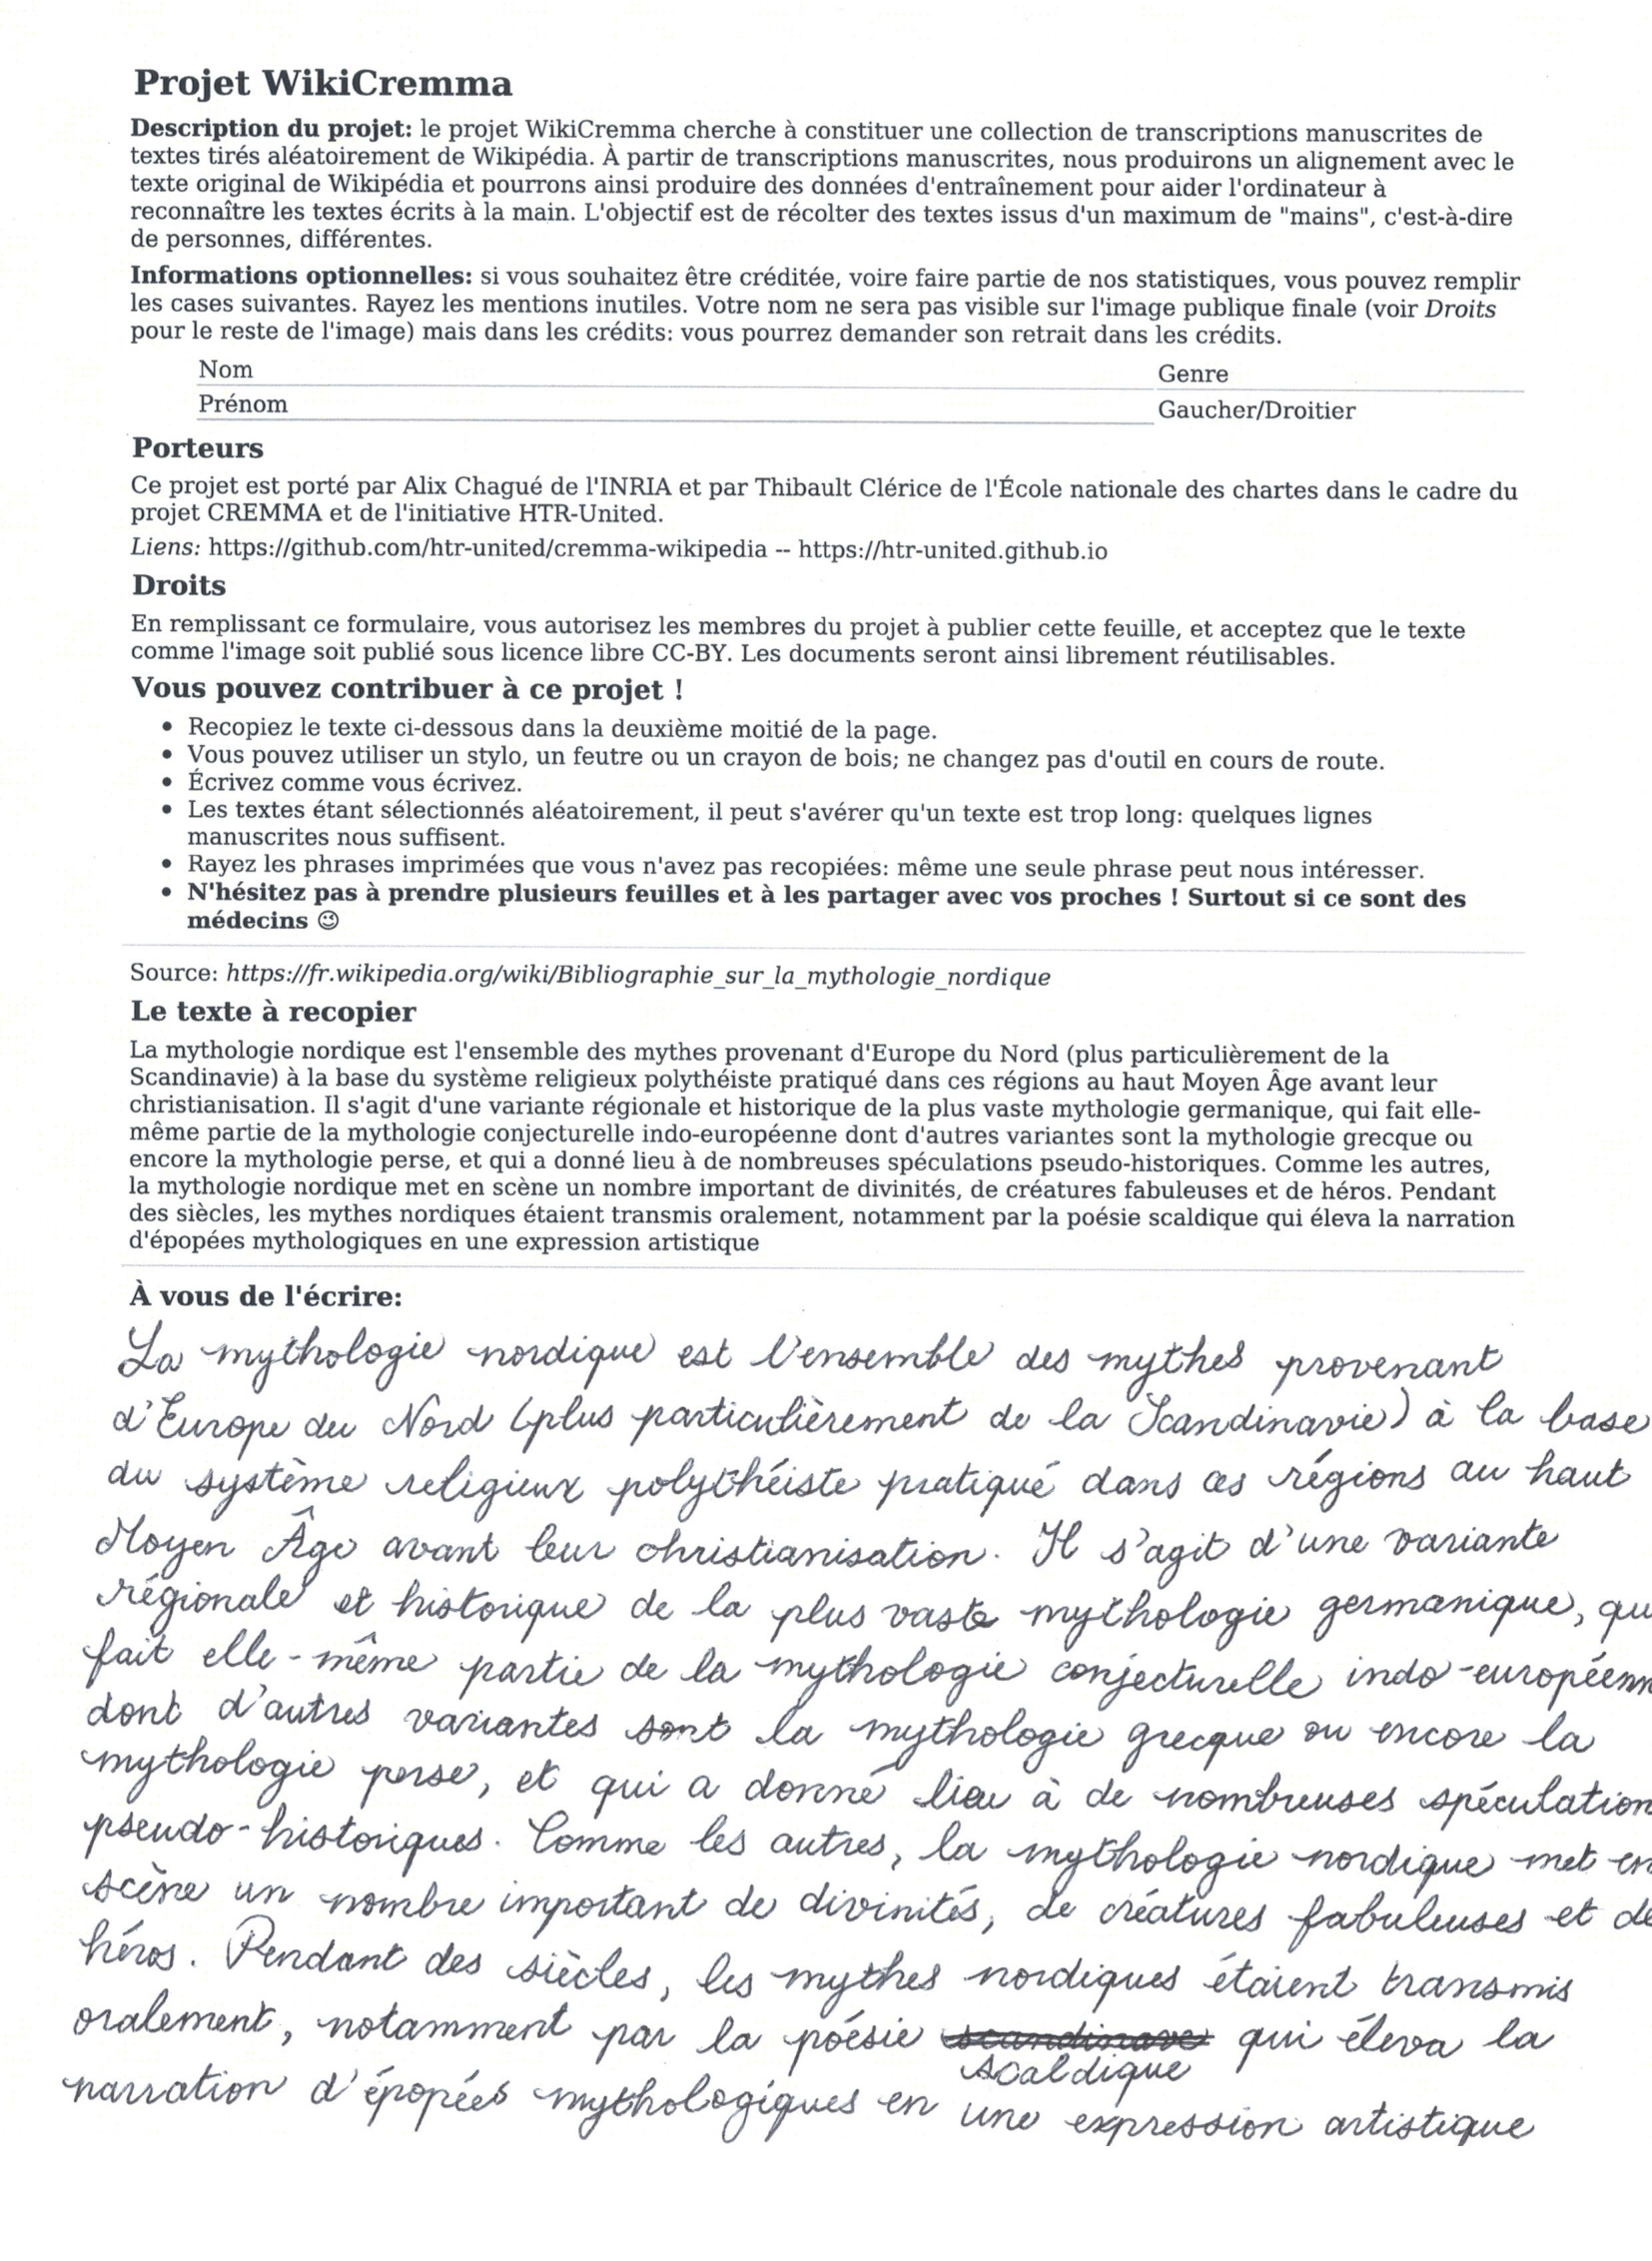 Projet WikiCremma
Description du projet: le projet WikiCremma cherche à constituer une collection de transcriptions manuscrites de
textes tirés aléatoirement de Wikipédia. À partir de transcriptions manuscrites, nous produirons un alignement avec le
texte original de Wikipédia et pourrons ainsi produire des données d'entraînement pour aider l'ordinateur à
reconnaître les textes écrits à la main. L'objectif est de récolter des textes issus d'un maximum de "mains", c'est-à-dire
de personnes, différentes.
Informations optionnelles: si vous souhaitez être créditée, voire faire partie de nos statistiques, vous pouvez remplir
les cases suivantes. Rayez les mentions inutiles. Votre nom ne sera pas visible sur l'image publique finale (voir Droits
pour le reste de l'image) mais dans les crédits: vous pourrez demander son retrait dans les crédits.
Nom Genre
Prénom Gaucher/Droitier
Porteurs
Ce projet est porté par Alix Chagué de l'INRIA et par Thibault Clérice de l'École nationale des chartes dans le cadre du
projet CREMMA et de l'initiative HTR-United.
Liens: https://github.com/htr-united/cremma-wikipedia -- https://htr-united.github.io
Droits
En remplissant ce formulaire, vous autorisez les membres du projet à publier cette feuille, et acceptez que le texte
comme l'image soit publié sous licence libre CC-BY. Les documents seront ainsi librement réutilisables.
Vous pouvez contribuer à ce projet !
• Recopiez le texte ci-dessous dans la deuxième moitié de la page.
• Vous pouvez utiliser un stylo, un feutre ou un crayon de bois; ne changez pas d'outil en cours de route.
• Écrivez comme vous écrivez.
• Les textes étant sélectionnés aléatoirement, il peut s'avérer qu'un texte est trop long: quelques lignes
manuscrites nous suffisent.
• Rayez les phrases imprimées que vous n'avez pas recopiées: même une seule phrase peut nous intéresser.
• N'hésitez pas à prendre plusieurs feuilles et à les partager avec vos proches ! Surtout si ce sont des
médecins 😉
Source: https://fr.wikipedia.org/wiki/Bibliographie_sur_la_mythologie_nordique
Le texte à recopier
La mythologie nordique est l'ensemble des mythes provenant d'Europe du Nord (plus particulièrement de la
Scandinavie) à la base du système religieux polythéiste pratiqué dans ces régions au haut Moyen Âge avant leur
christianisation. Il s'agit d'une variante régionale et historique de la plus vaste mythologie germanique, qui fait elle-
même partie de la mythologie conjecturelle indo-européenne dont d'autres variantes sont la mythologie grecque ou
encore la mythologie perse, et qui a donné lieu à de nombreuses spéculations pseudo-historiques. Comme les autres,
la mythologie nordique met en scène un nombre important de divinités, de créatures fabuleuses et de héros. Pendant
des siècles, les mythes nordiques étaient transmis oralement, notamment par la poésie scaldique qui éleva la narration
d'épopées mythologiques en une expression artistique
À vous de l'écrire:
La mythologie nordique est l'ensemble des mythes provenant
d'Europe du Nord (plus particulièrement de la Scandinavie) à la base
du système religieux polythéiste pratiqué dans ces régions au haut
Moyen Âge avant leur christianisation. Il s'agit d'une variante
régionale et historique de la plus vaste mythologie germanique, qu
fait elle-même partie de la mythologie conjecturelle indo-européenn
dont d'autres variantes sont la mythologie grecque ou encore la
mythologie perse, et qui a donné lieu à de nombreuses spéculation
pseudo-historiques. Comme les autres, la mythologie nordique met en
scène un nombre important de divinités, de créatures fabuleuses et de
héros. Pendant des siècles, les mythes nordiques étaient transmis
oralement, notamment par la poésie scandinave qui éleva la
scaldique
narration d'épopées mythologiques en une expression artistique